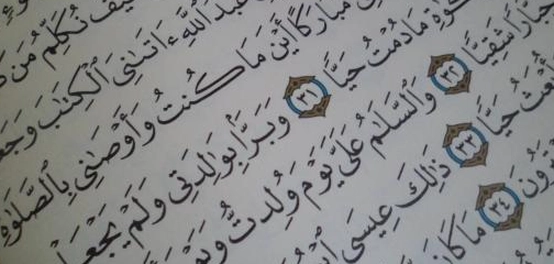 نُكَلِّمُ مَن
عَبْدُ ٱللَّهِ ءَاتَىٰنِىَ ٱلْكِتَٰبَ
مُبَارَكًا أَيْنَ مَا كُنتُ وَأَوْصَٰنِى بِٱلصَّلَوٰةِ
مَا دُمْتُ حَيًّا ٣١ وَبَرًّۢا بِوَٰلِدَتِى وَلَمْ
جَبَّارًا شَقِيًّا ٣٢ وَٱلسَّلَٰمُ عَلَىَّ يَوْمَ وُلِدتُّ
حَيًّا ٣٣ ذَٰلِكَ عِيسَى
٣٤ مَا كَانَ